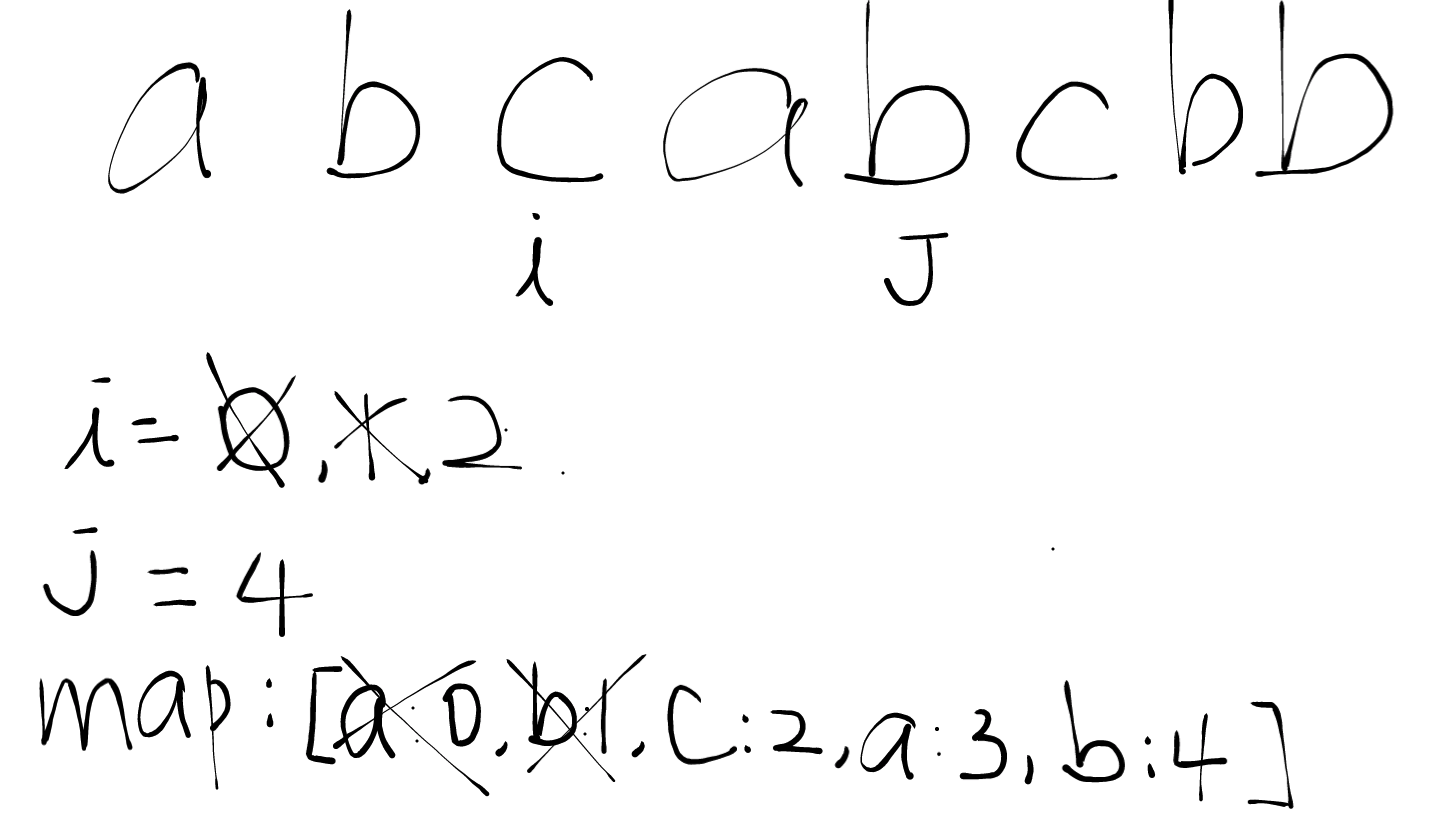 a b c a b c b b
i J
i = 0, 1, 2
J = 4
map: [a:0, b:1, c:2, a:3, b:4]